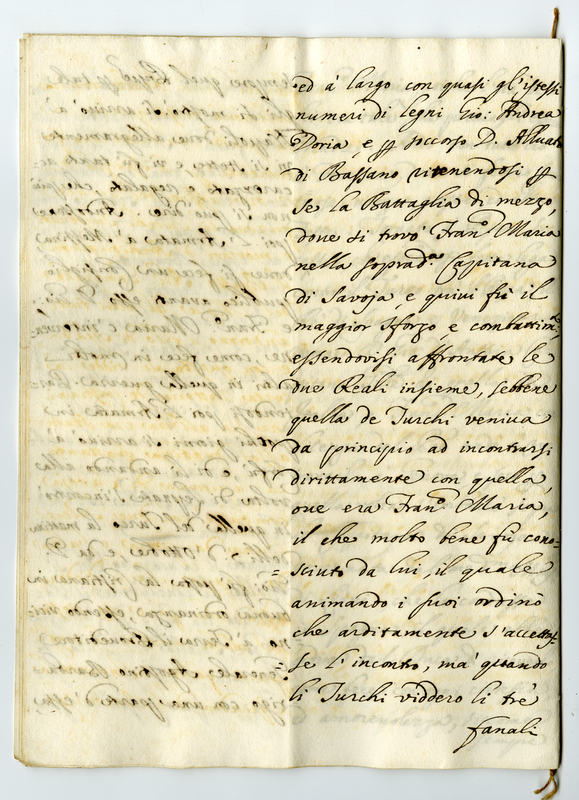 ed á largo con quasi gl'istessi
numeri di Legni Gio: Andrea
Doria, e p soccorso D. Alluaro
di Bassano ritenendosi p
se la Battaglia di mezzo,
dove si trovò Fran.o Maria
nella soprad.a Capitana
di Savoja, e quivi fù il
maggior sforzo, e combattim.to
essendovisi affrontate le
due Reali insieme, sebbene
quella de Turchi veniva
da principio ad incontrarsi
dirittamente con quella,
ove era Fran.o Maria,
il che molto bene fù cono-
=sciuto da lui, il quale
animando i suoi ordinò
che arditamente s'accettas-
=se l'incontro, mà quando
li Turchi viddero li trè
fanali